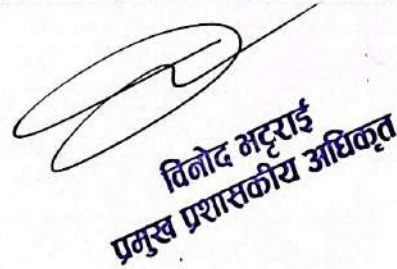 विनोद भट्टराई
प्रमुख प्रशासकीय अधिकृत